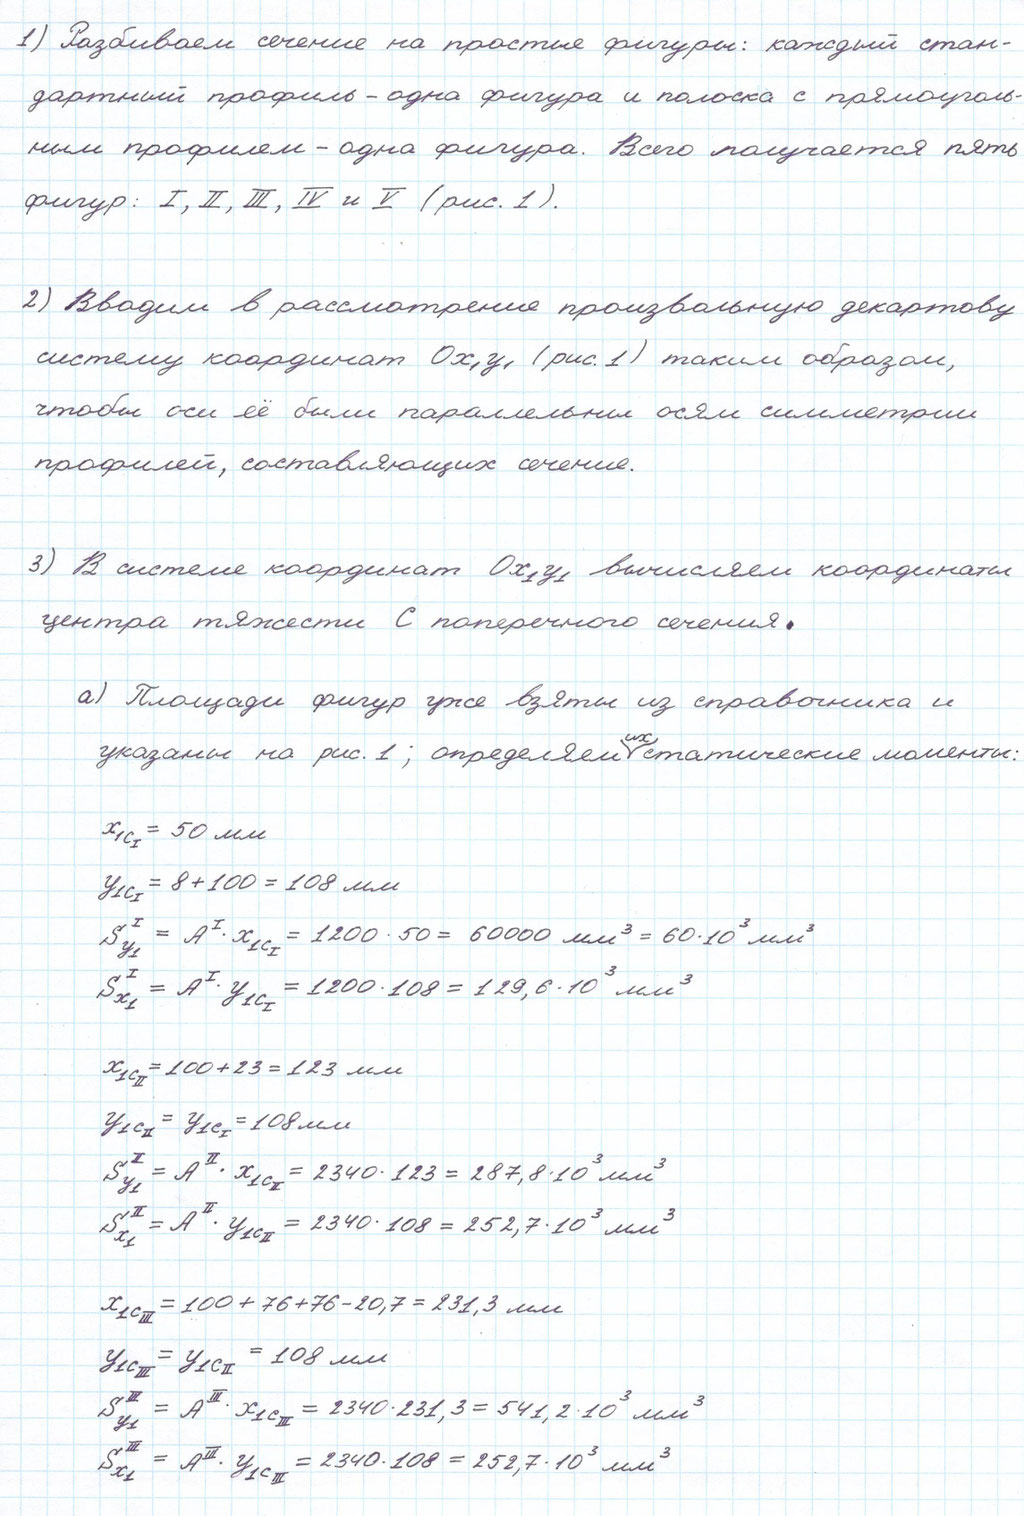 1) Разбиваем сечение на простые фигуры: каждый стан-
дартный профиль – одна фигура и полоска с прямоуголь-
ным профилем – одна фигура. Всего получается пять
фигур: I, II, III, IV и V (рис. 1).
2) Вводим в рассмотрение произвольную декартову
систему координат Ox₁y₁ (рис. 1) таким образом,
чтобы оси её были параллельны осям симметрии
профилей, составляющих сечение.
3) В системе координат Ox₁y₁ вычисляем координаты
центра тяжести C поперечного сечения.
а) Площади фигур уже взяты из справочника и
указаны на рис. 1; определяем их статические моменты:
x_{1C_I} = 50 мм
y_{1C_I} = 8 + 100 = 108 мм
S_{y_1}^{I} = A^{I} · x_{1C_I} = 1200 · 50 = 60000 мм³ = 60 · 10³ мм³
S_{x_1}^{I} = A^{I} · y_{1C_I} = 1200 · 108 = 129,6 · 10³ мм³
x_{1C_II} = 100 + 23 = 123 мм
y_{1C_II} = y_{1C_I} = 108 мм
S_{y_1}^{II} = A^{II} · x_{1C_II} = 2340 · 123 = 287,8 · 10³ мм³
S_{x_1}^{II} = A^{II} · y_{1C_II} = 2340 · 108 = 252,7 · 10³ мм³
x_{1C_III} = 100 + 76 + 76 – 20,7 = 231,3 мм
y_{1C_III} = y_{1C_II} = 108 мм
S_{y_1}^{III} = A^{III} · x_{1C_III} = 2340 · 231,3 = 541,2 · 10³ мм³
S_{x_1}^{III} = A^{III} · y_{1C_III} = 2340 · 108 = 252,7 · 10³ мм³